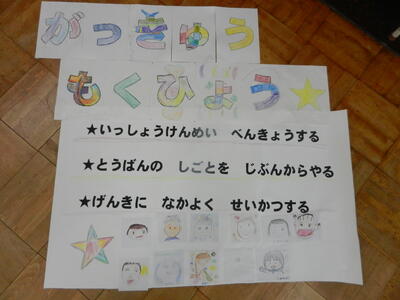 がっきゅう
もくひょう
★いっしょうけんめい べんきょうする
★とうばんの しごとを じぶんからやる
★げんきに なかよく せいかつする